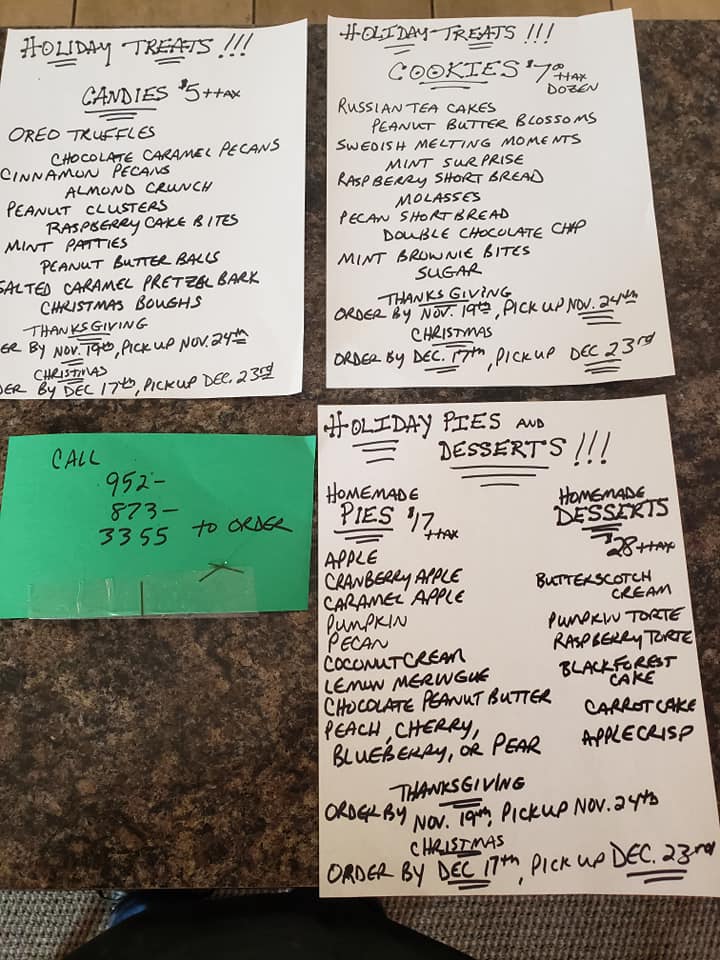 HOLIDAY TREATS!!!
CANDIES $5 +TAX
OREO TRUFFLES
CHOCOLATE CARAMEL PECANS
CINNAMON PECANS
ALMOND CRUNCH
PEANUT CLUSTERS
RASPBERRY CAKE BITES
MINT PATTIES
PEANUT BUTTER BALLS
SALTED CARAMEL PRETZEL BARK
CHRISTMAS BOUGHS
THANKSGIVING
ER BY NOV. 19th, PICK UP NOV. 24th
CHRISTMAS
DER BY DEC 17th, PICK UP DEC. 23rd
HOLIDAY TREATS!!!
COOKIES $7.00
+TAX
DOZEN
RUSSIAN TEA CAKES
PEANUT BUTTER BLOSSOMS
SWEDISH MELTING MOMENTS
MINT SURPRISE
RASPBERRY SHORT BREAD
MOLASSES
PECAN SHORT BREAD
DOUBLE CHOCOLATE CHIP
MINT BROWNIE BITES
SUGAR
THANKSGIVING
ORDER BY NOV. 19th, PICK UP NOV. 24th
CHRISTMAS
ORDER BY DEC. 17th, PICK UP DEC 23rd
CALL
952-
873-
3355 TO ORDER
HOLIDAY PIES AND
DESSERTS!!!
HOMEMADE
PIES $17
+TAX
APPLE
CRANBERRY APPLE
CARAMEL APPLE
PUMPKIN
PECAN
COCONUT CREAM
LEMON MERINGUE
CHOCOLATE PEANUT BUTTER
PEACH, CHERRY,
BLUEBERRY, OR PEAR
HOMEMADE
DESSERTS
$28 +TAX
BUTTERSCOTCH
CREAM
PUMPKIN TORTE
RASPBERRY TORTE
BLACK FOREST
CAKE
CARROT CAKE
APPLE CRISP
THANKSGIVING
ORDER BY NOV. 19th, PICK UP NOV. 24th
CHRISTMAS
ORDER BY DEC 17th, PICK UP DEC. 23rd